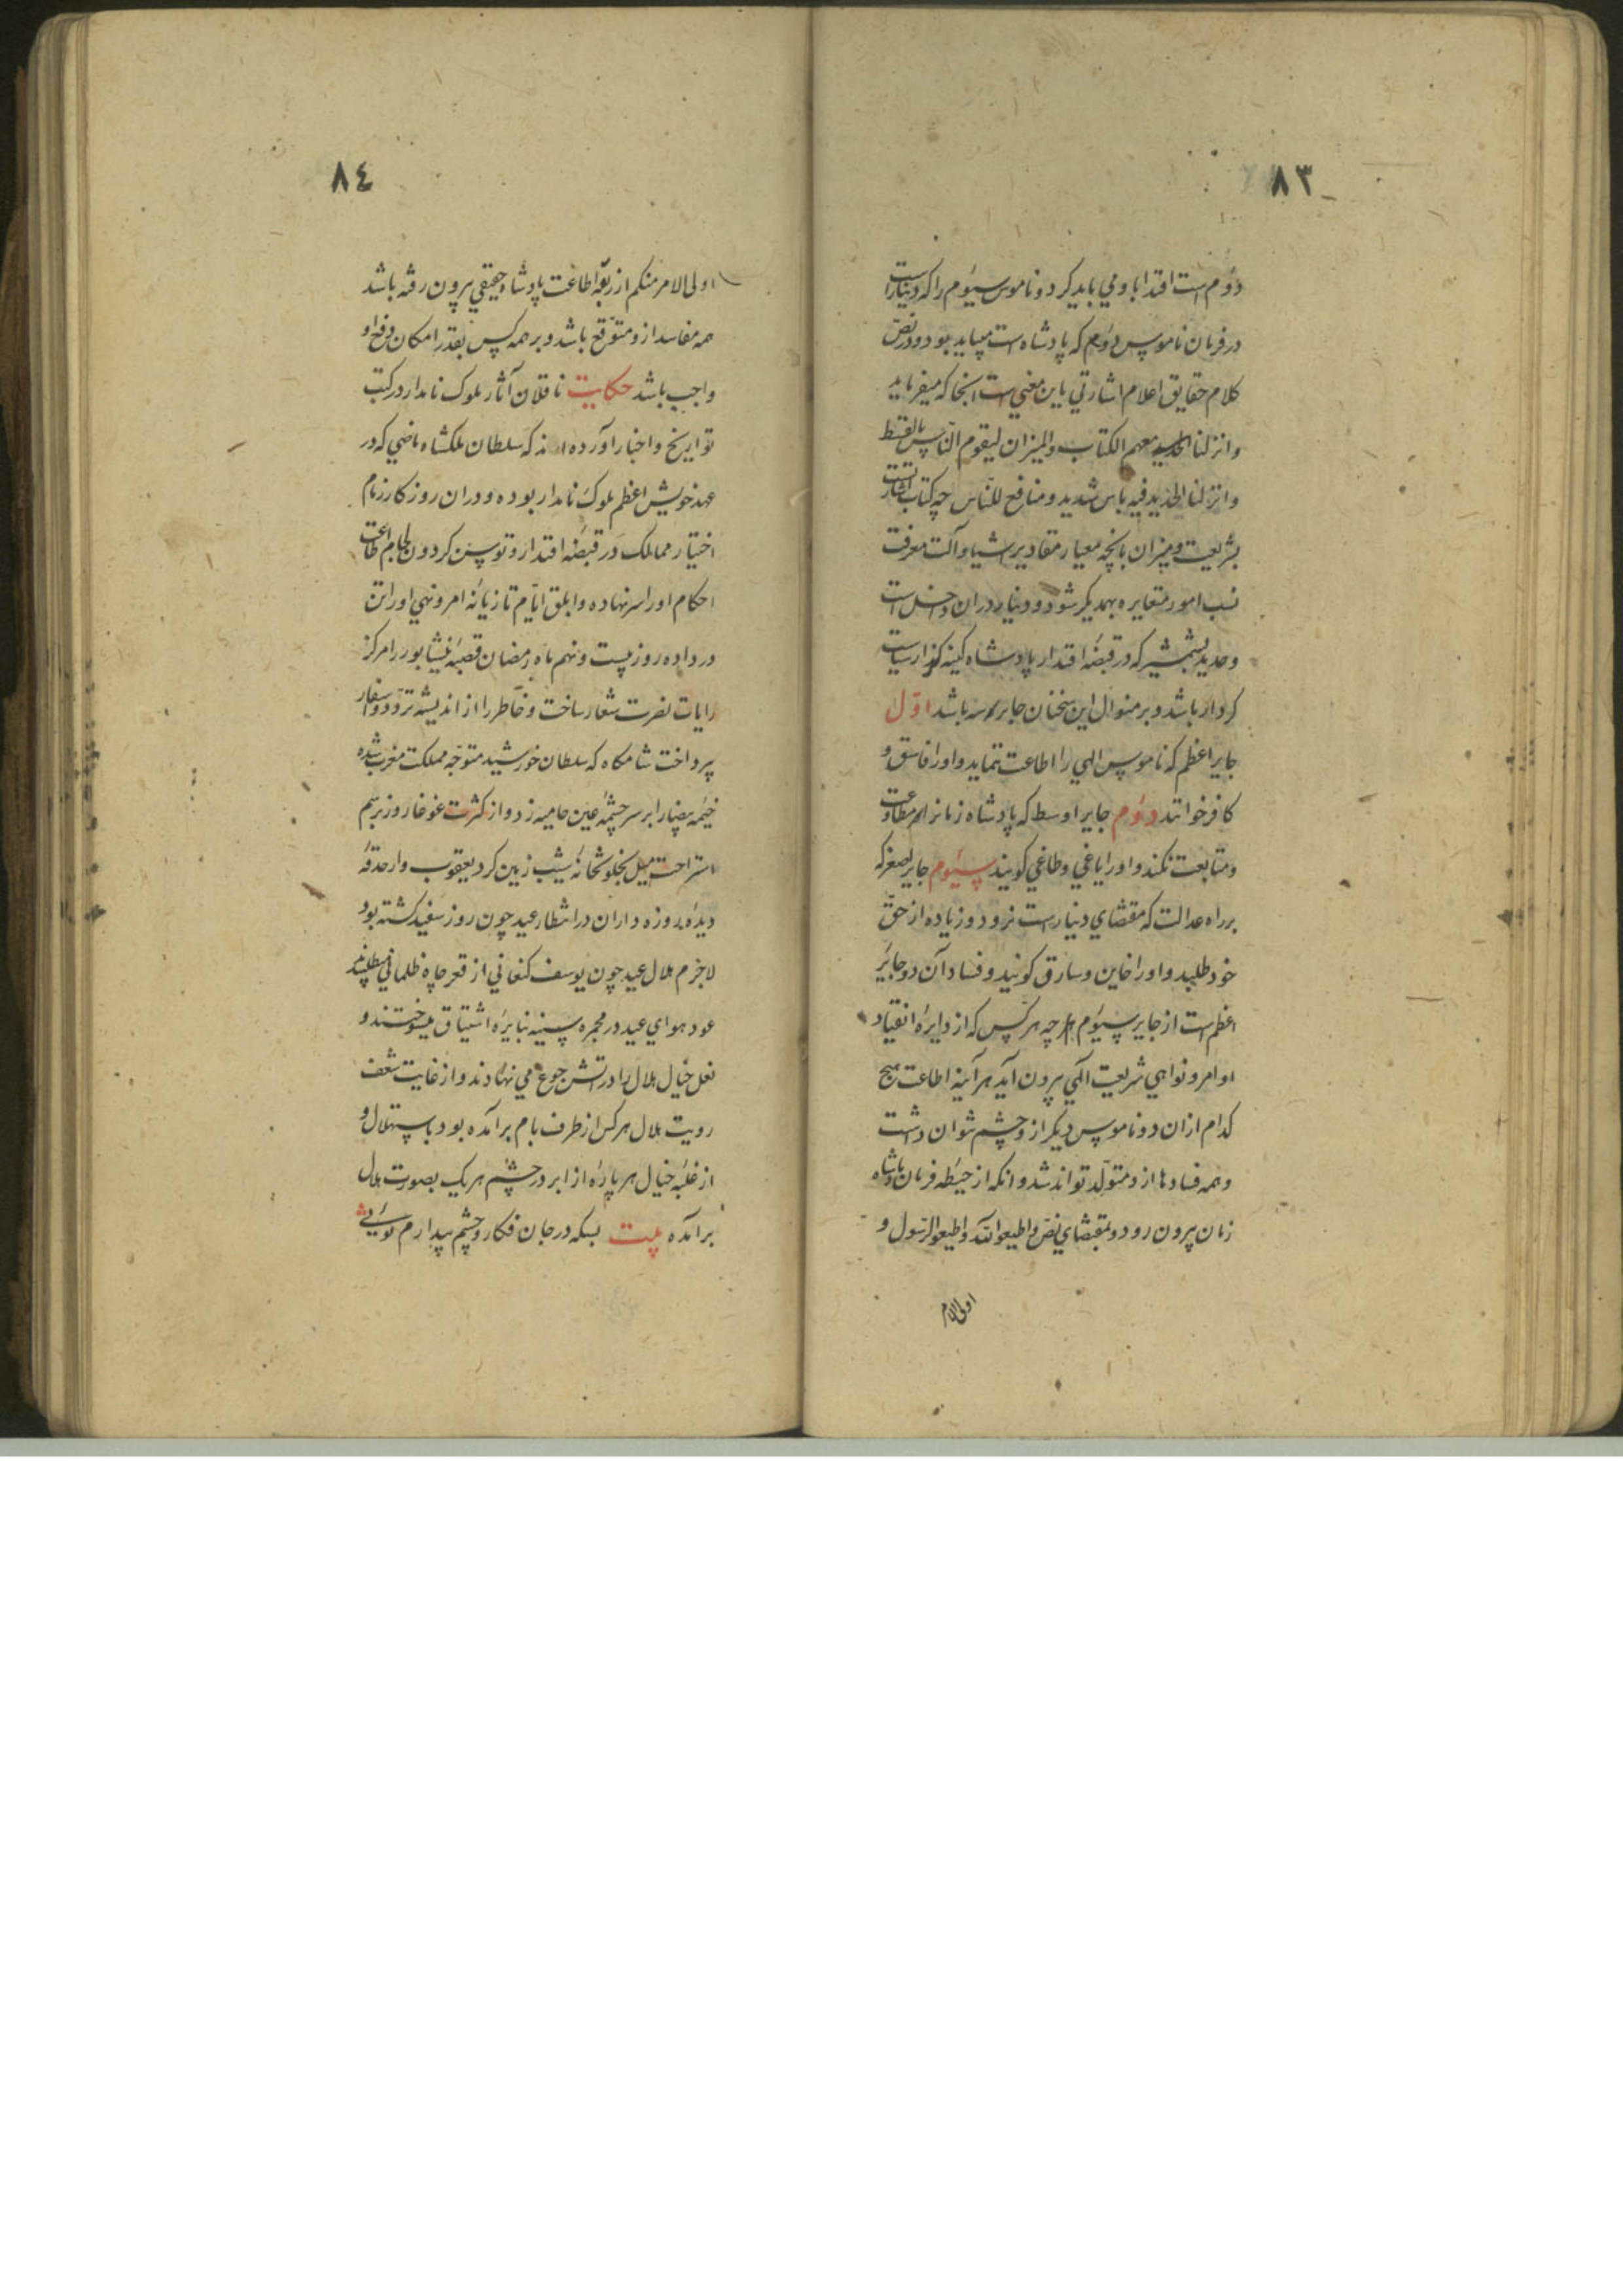 ٨٣
دوّم است اقتدا باو می باید کرد و ناموس سیّوم را که دینار است
در فرمان ناموس دوّم که پادشاه است میباید بود و در نصّ
کلام حقایق اعلام اشارتی باین معنی است انجا که میفرماید
وانزلنا معهم الکتاب والمیزان لیقوم النّاس بالقسط
وانزلنا الحدید فیه باس شدید و منافع للنّاس چه کتاب اشارتست
بشریعت و میزان بانچه معیار مقادیر اشیا و آلت معرفت
نسب امور متغایره بهمدیگر شود و دینار در ان داخل است
و حدید بشمشیر که در قبضهٔ اقتدار پادشاه کینه گذار سیاست
کردار باشد و بر منوال این سخنان جایر سه باشد اوّل
جایر اعظم که ناموس الهی را اطاعت ننماید و او را فاسق و
کافر خوانند دوّم جایر اوسط که پادشاه زمانرا مطاوعت
و متابعت نکند و او را یاغی و طاغی کویند سیّوم جایر اصغر که
بر راه عدالت که مقتضای دینار است نرود و زیاده از حقّ
خود طلبد و او را خاین و سارق کویند و فساد آن دو جایر
اعظم است از جایر سیّوم چه هر کس که از دایرهٔ انقیاد
اوامر و نواهی شریعت الهی بیرون آید هر آینه اطاعت هیچ
کدام ازان دو ناموس دیکر ازو چشم نتوان داشت
و همه فسادها ازو متولّد تواند شد و انکه از حیطهٔ فرمان پادشاه
زمان بیرون رود و بمقتضای نصّ واطیعوا الله واطیعوا الرّسول و
اولی الامر
٨٤
اولی الامر منکم از ربقهٔ اطاعت پادشاه حقیقی بیرون رفته باشد
همه مفاسد ازو متوقّع باشد و بر همه کس بقدر امکان دفع او
واجب باشد حکایت ناقلان آثار ملوک نامدار در کتب
تواریخ و اخبار آورده اند که سلطان ملکشاه ماضی که در
عهد خویش اعظم ملوک نامدار بوده و دران روزکار زمام
اختیار ممالک در قبضهٔ اقتدار او توسن کردون لجام طاعت
احکام او را سر نهاده و ابلق ایّام تازیانهٔ امر و نهی او را تن
در داده روز بیست و نهم ماه رمضان قصبهٔ نیشابور را مرکز
رایات نصرت شعار ساخت و خاطر را از اندیشه تردّد و اسفار
پرداخت شامکاه که سلطان خورشید متوجّه مملکت مغرب شده
خیمهٔ بیضا را بر سر چشمهٔ عین حامیه زد و از کثرت غوغا روز برسم
استراحت میل بخلوتخانهٔ شب زمین کرد یعقوب وار حدقهٔ
دیدهٔ روزه داران در انتظار عید چون روز سفید کشته بود
لاجرم هلال عید چون یوسف کنعانی از قعر چاه ظلمانی میطلبیدند
عود هوای عید در مجمرهٔ سینه بنایرهٔ اشتیاق میسوختند و
نعل خیال هلال را در اتش جوع می نهادند و از غایت شعف
رویت هلال هر کس از طرف بام برآمده بود باستهلال و
از غلبهٔ خیال هر پارهٔ از ابر در چشم هر یک بصورت هلال
برآمده بیت بسکه در جان فکار و چشم بیدارم توئی